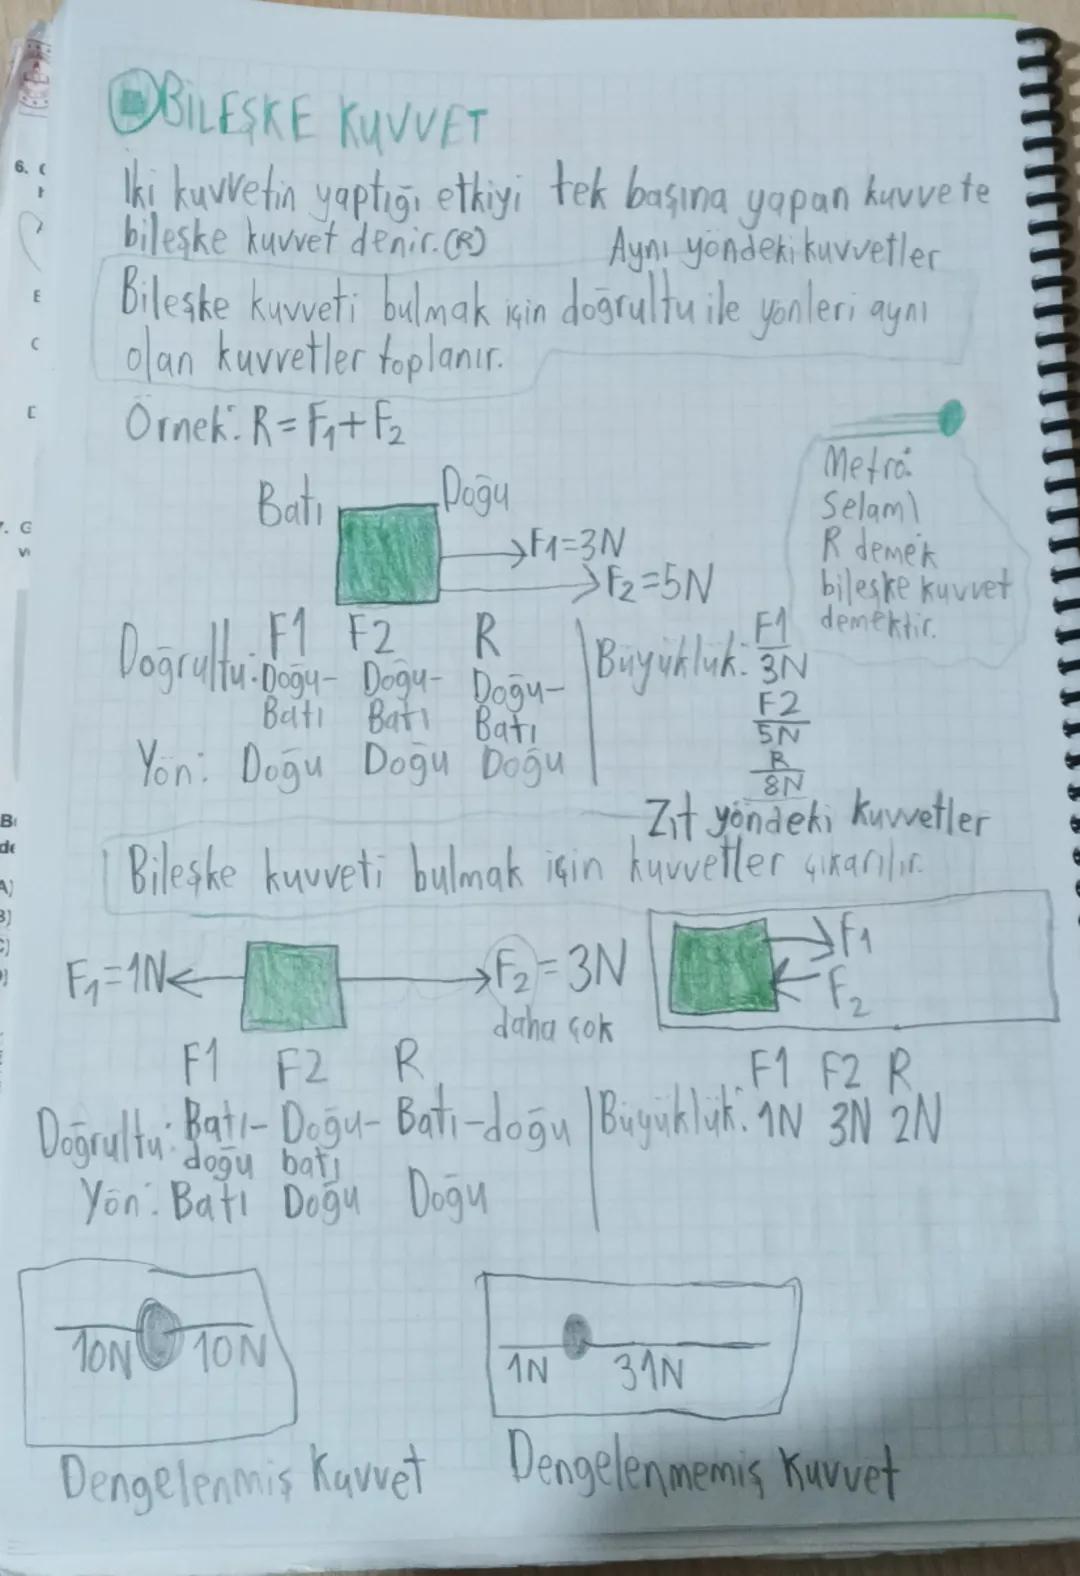 BİLEŞKE KUVVET
İki kuvvetin yaptığı etkiyi tek başına yapan kuvvete
bileşke kuvvet denir. (R)
Aynı yöndeki kuvvetler
Bileşke kuvveti bulmak için doğrultu ile yönleri aynı
olan kuvvetler toplanır.
Örnek: R = F1 + F2
Metro:
Selam!
R demek
bileşke kuvvet
demektir.
Batı Doğu
F1=3N
F2=5N
F1 F2 R
Doğrultu: Doğu- Doğu- Doğu-
Batı Batı Batı
Yön: Doğu Doğu Doğu
Büyüklük: F1
3N
F2
5N
R
8N
Zıt yöndeki kuvvetler
Bileşke kuvveti bulmak için kuvvetler çıkarılır.
F1=1N F2=3N
daha çok
F1
F2
F1 F2 R
Doğrultu: Batı- Doğu- Batı-doğu
doğu batı
Yön: Batı Doğu Doğu
F1 F2 R
Büyüklük: 1N 3N 2N
10N 10N
1N 31N
Dengelenmiş Kuvvet
Dengelenmemiş Kuvvet
6.
E
C